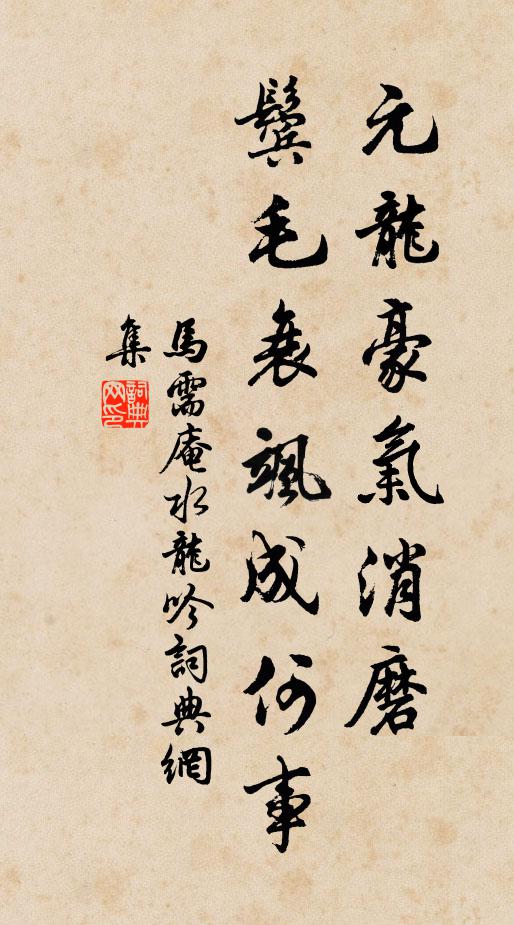 元龍豪氣消磨
鬓毛衰颯成何事
馬需庵水龍吟詞典網
集
詞典
网印